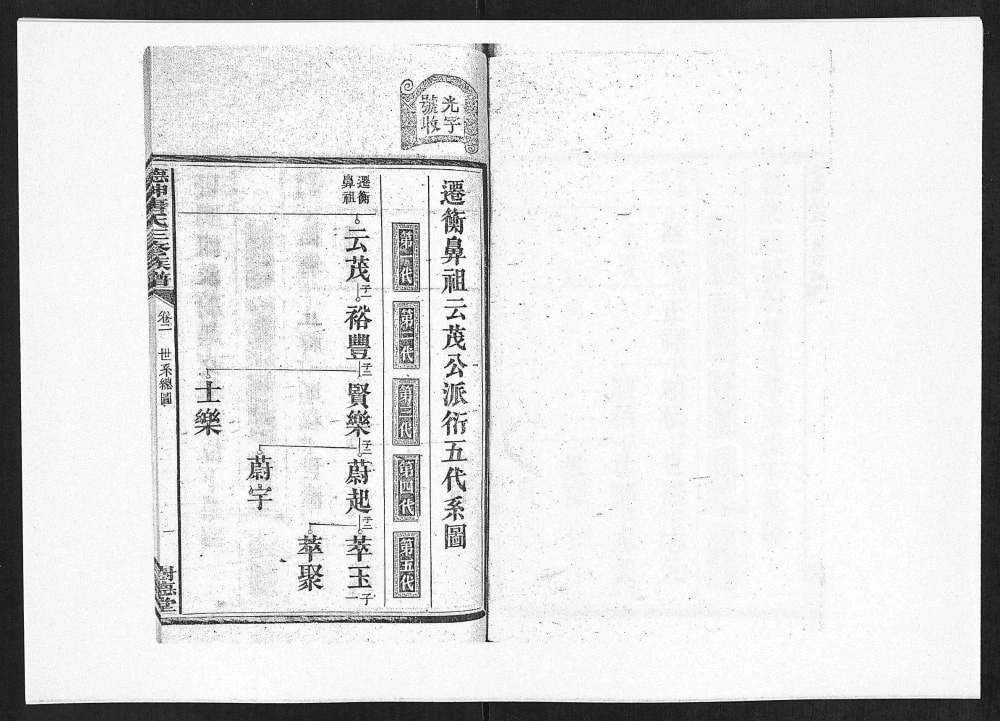 光字
號收
遷衡鼻祖云茂公派衍五代系圖
第一代
第二代
第三代
第四代
第五代
遷衡
鼻祖
云茂
子一
裕豐
子二
賢樂
子二
蔚起
子二
萃玉
子一
萃聚
蔚宇
士樂
唐氏三修族譜
卷二
世系總圖
一
樹德堂